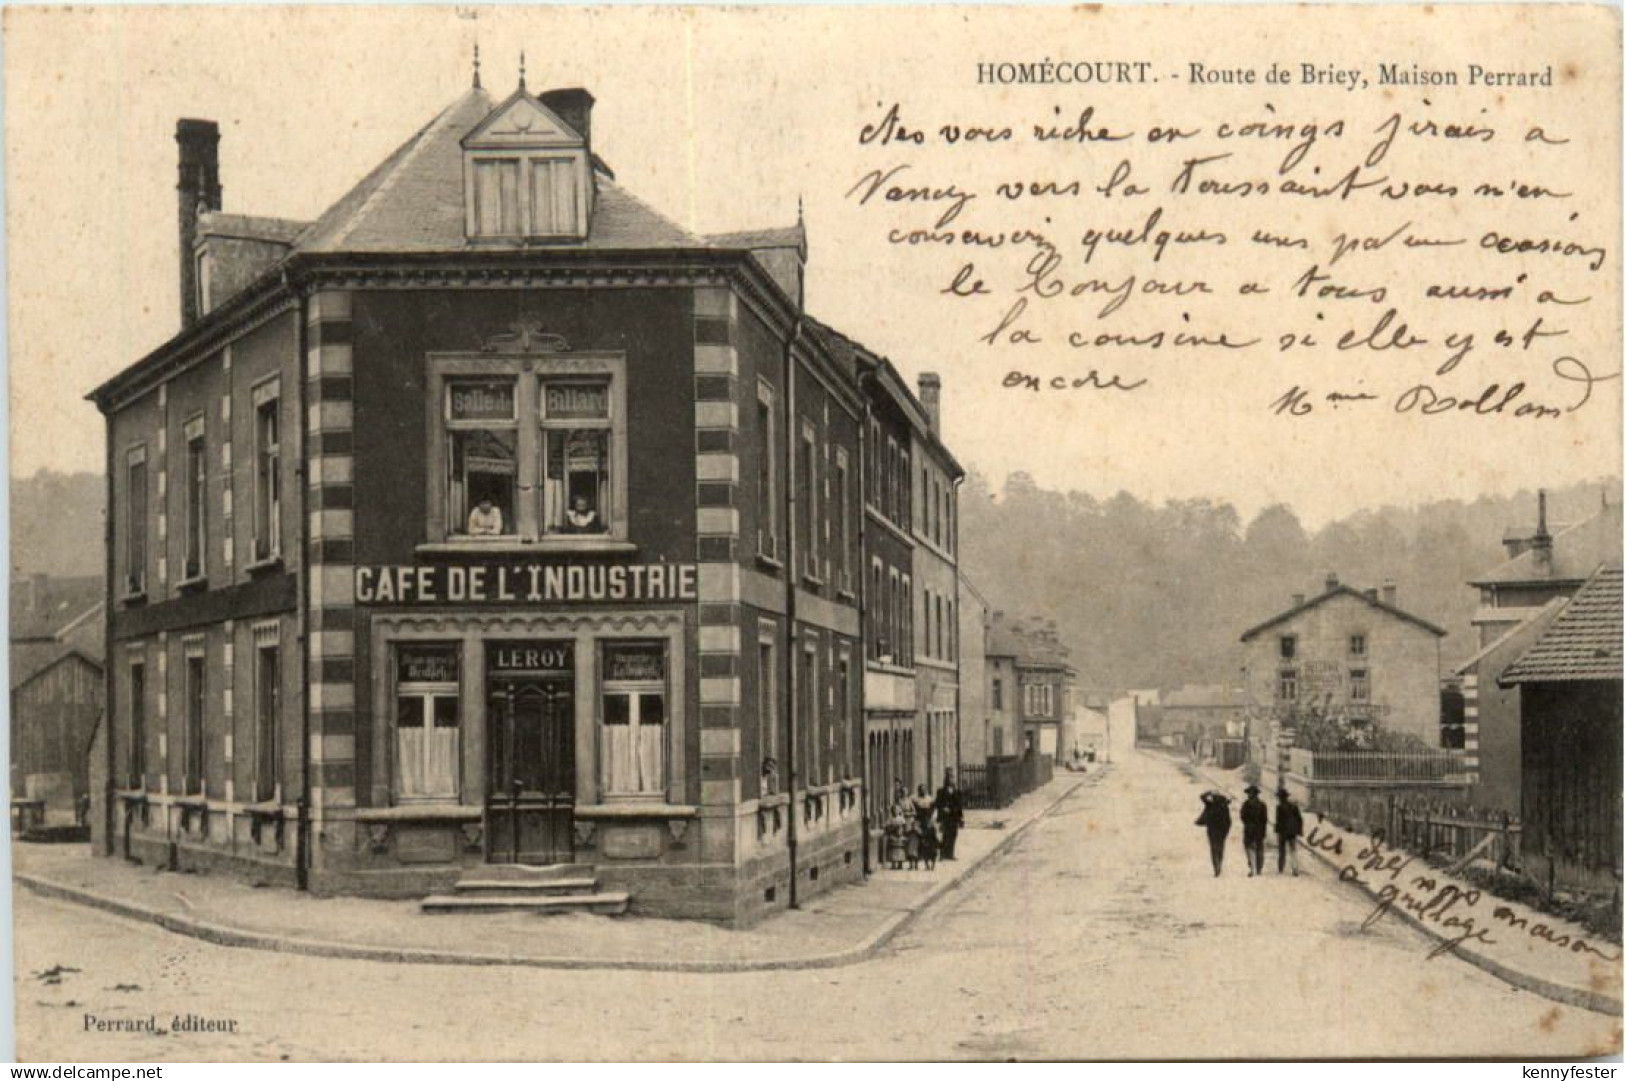 HOMÉCOURT. - Route de Briey, Maison Perrard
étes vous riche en coings j'irais a
Nancy vers la Toussaint vous m'en
conserverez quelques uns par une ocasions
le bonjour a tous aussi a
la cousine si elle y est
encore
Mme Rolland
Salle de Billard
CAFE DE L'INDUSTRIE
LEROY
ici maison
a grillage
Perrard, éditeur
delcampe.net
kennyfester